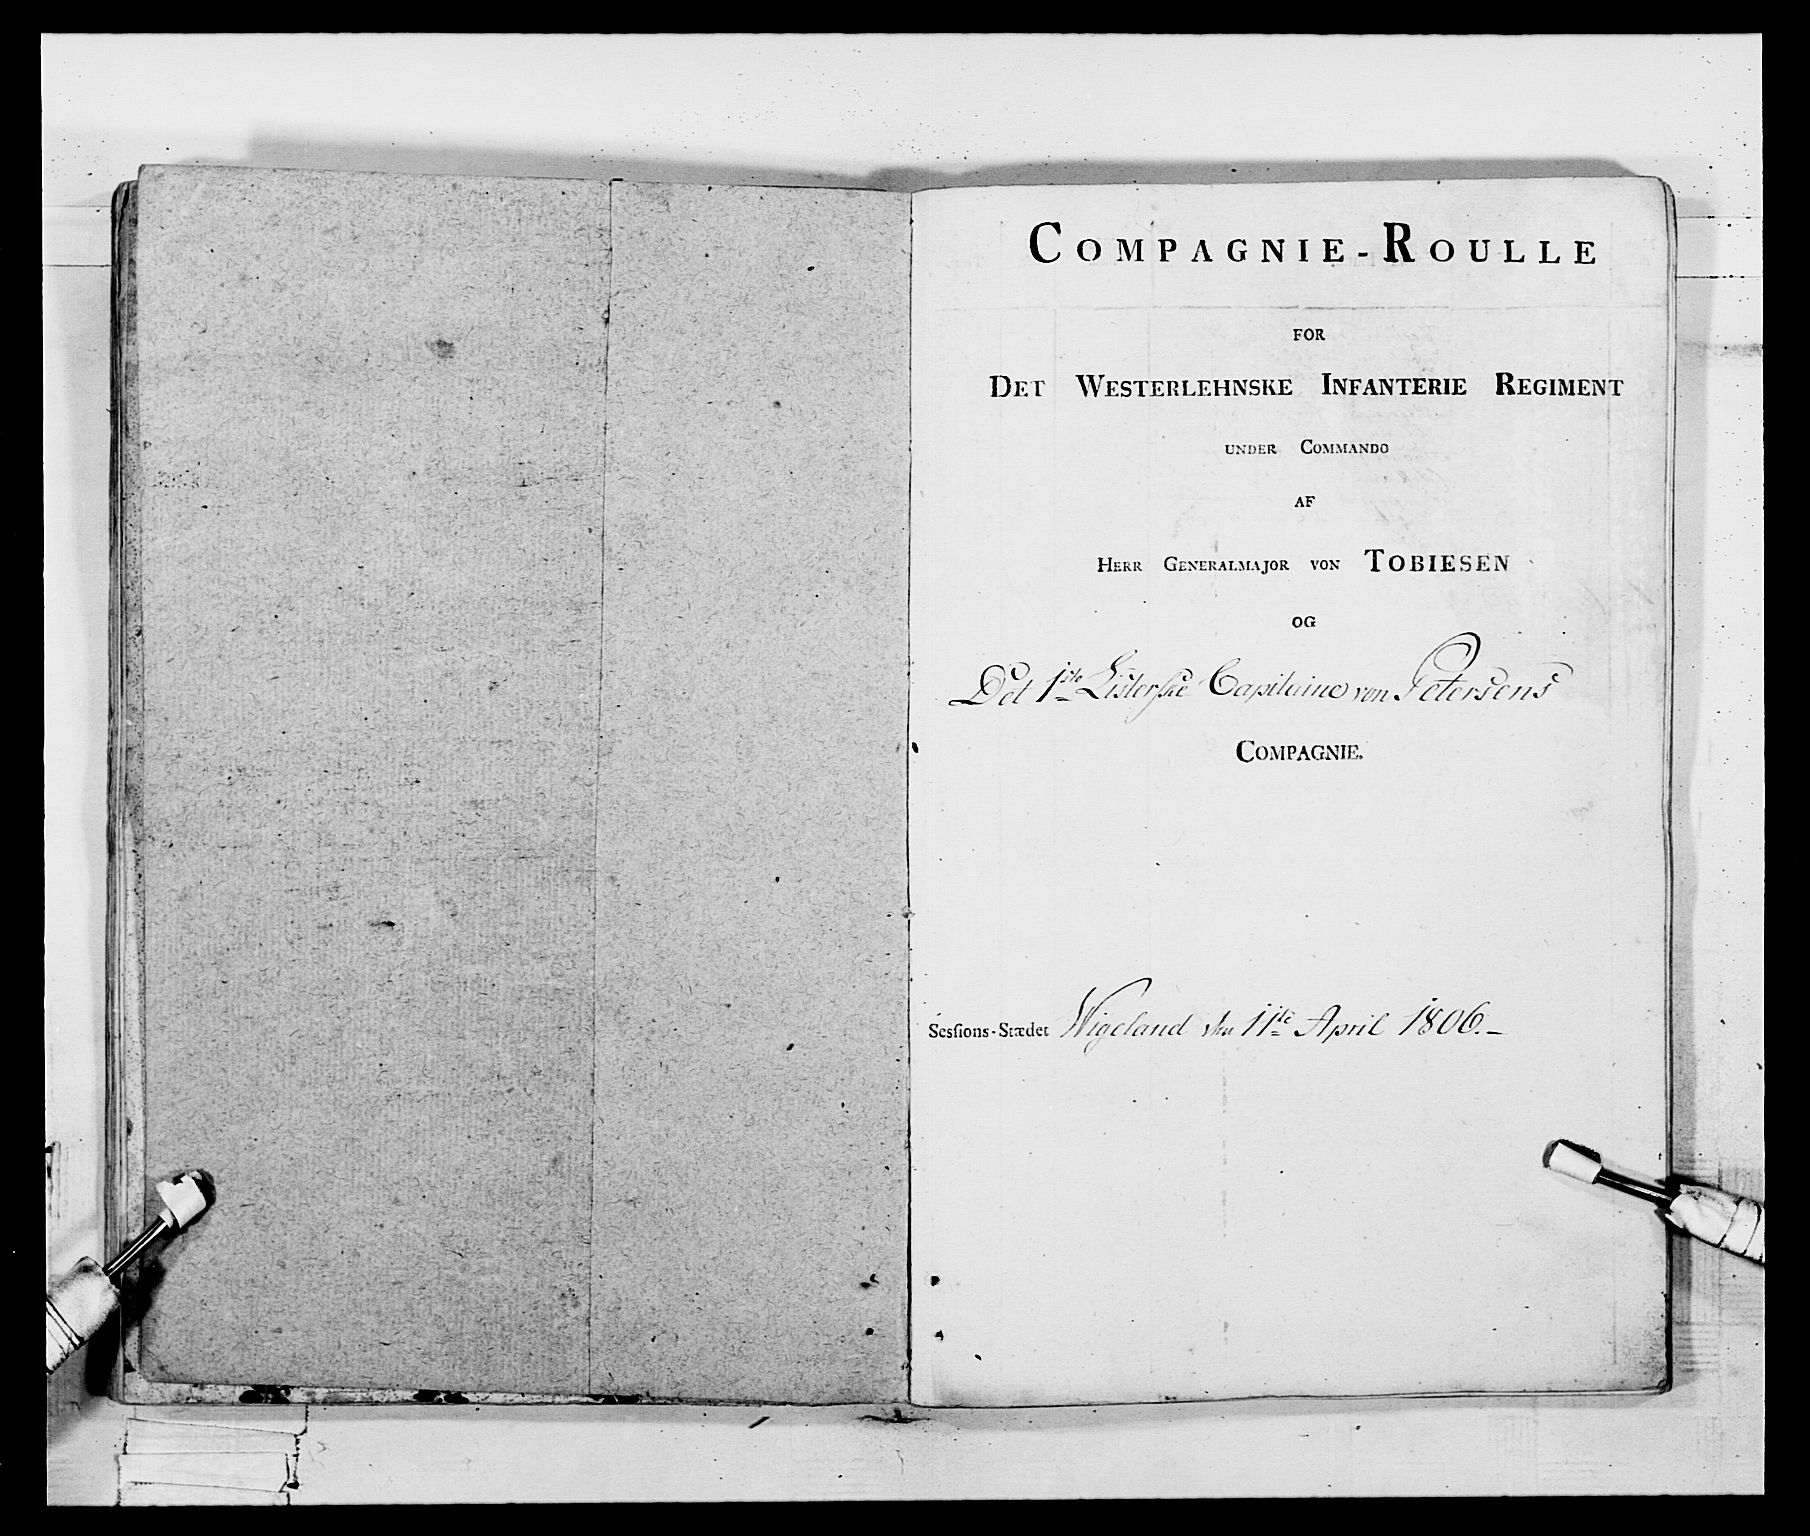 COMPAGNIE-ROULLE
FOR
DET WESTERLEHNSKE INFANTERIE REGIMENT
UNDER COMMANDO
AF
HERR GENERALMAJOR VON TOBIESEN
OG
Det 1ste Listerske Capitaine von Petersens
COMPAGNIE.
Sessions-Stædet Wigeland den 11te April 1806.-